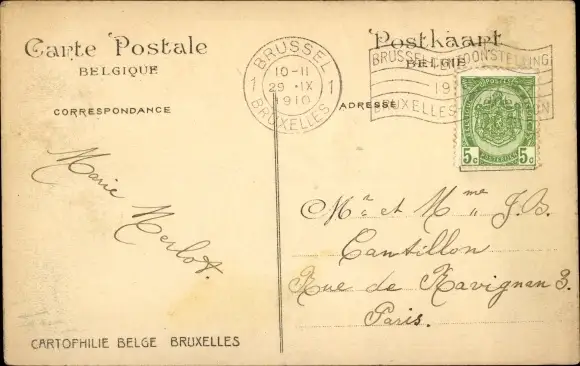 Carte Postale
BELGIQUE
CORRESPONDANCE
Marie Merlot.
CARTOPHILIE BELGE BRUXELLES
BRUSSEL
10-11
29 IX
1910
1 1
BRUXELLES
Postkaart
BELGIE
ADRESSE
BRUSSEL
19
BRUXELLES
5c 5c
Mr et Mme J.B.
Cantillon
Rue de Ravignan 3.
Paris.